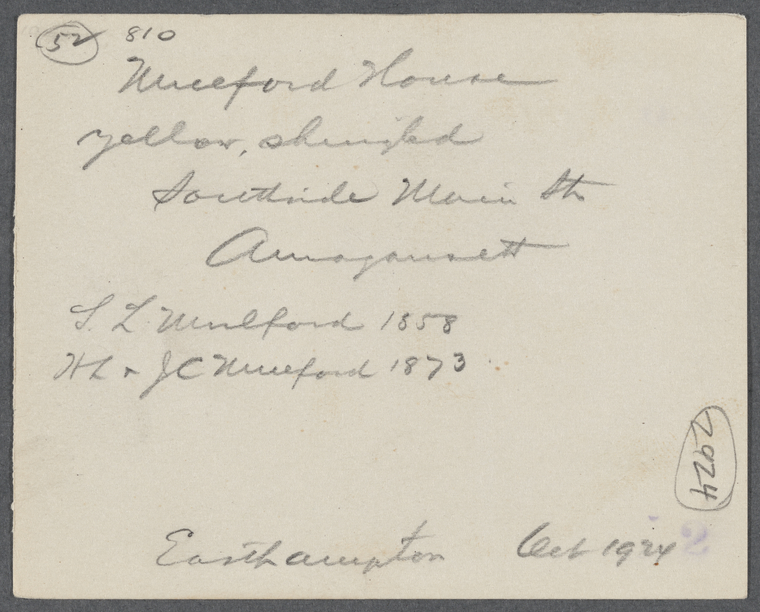 52 810
Mulford House
yellow, shingled
Southside Main St
Amagansett
S. L. Mulford 1858
H L + J C Mulford 1873
2924
Easthampton Oct 1924
2